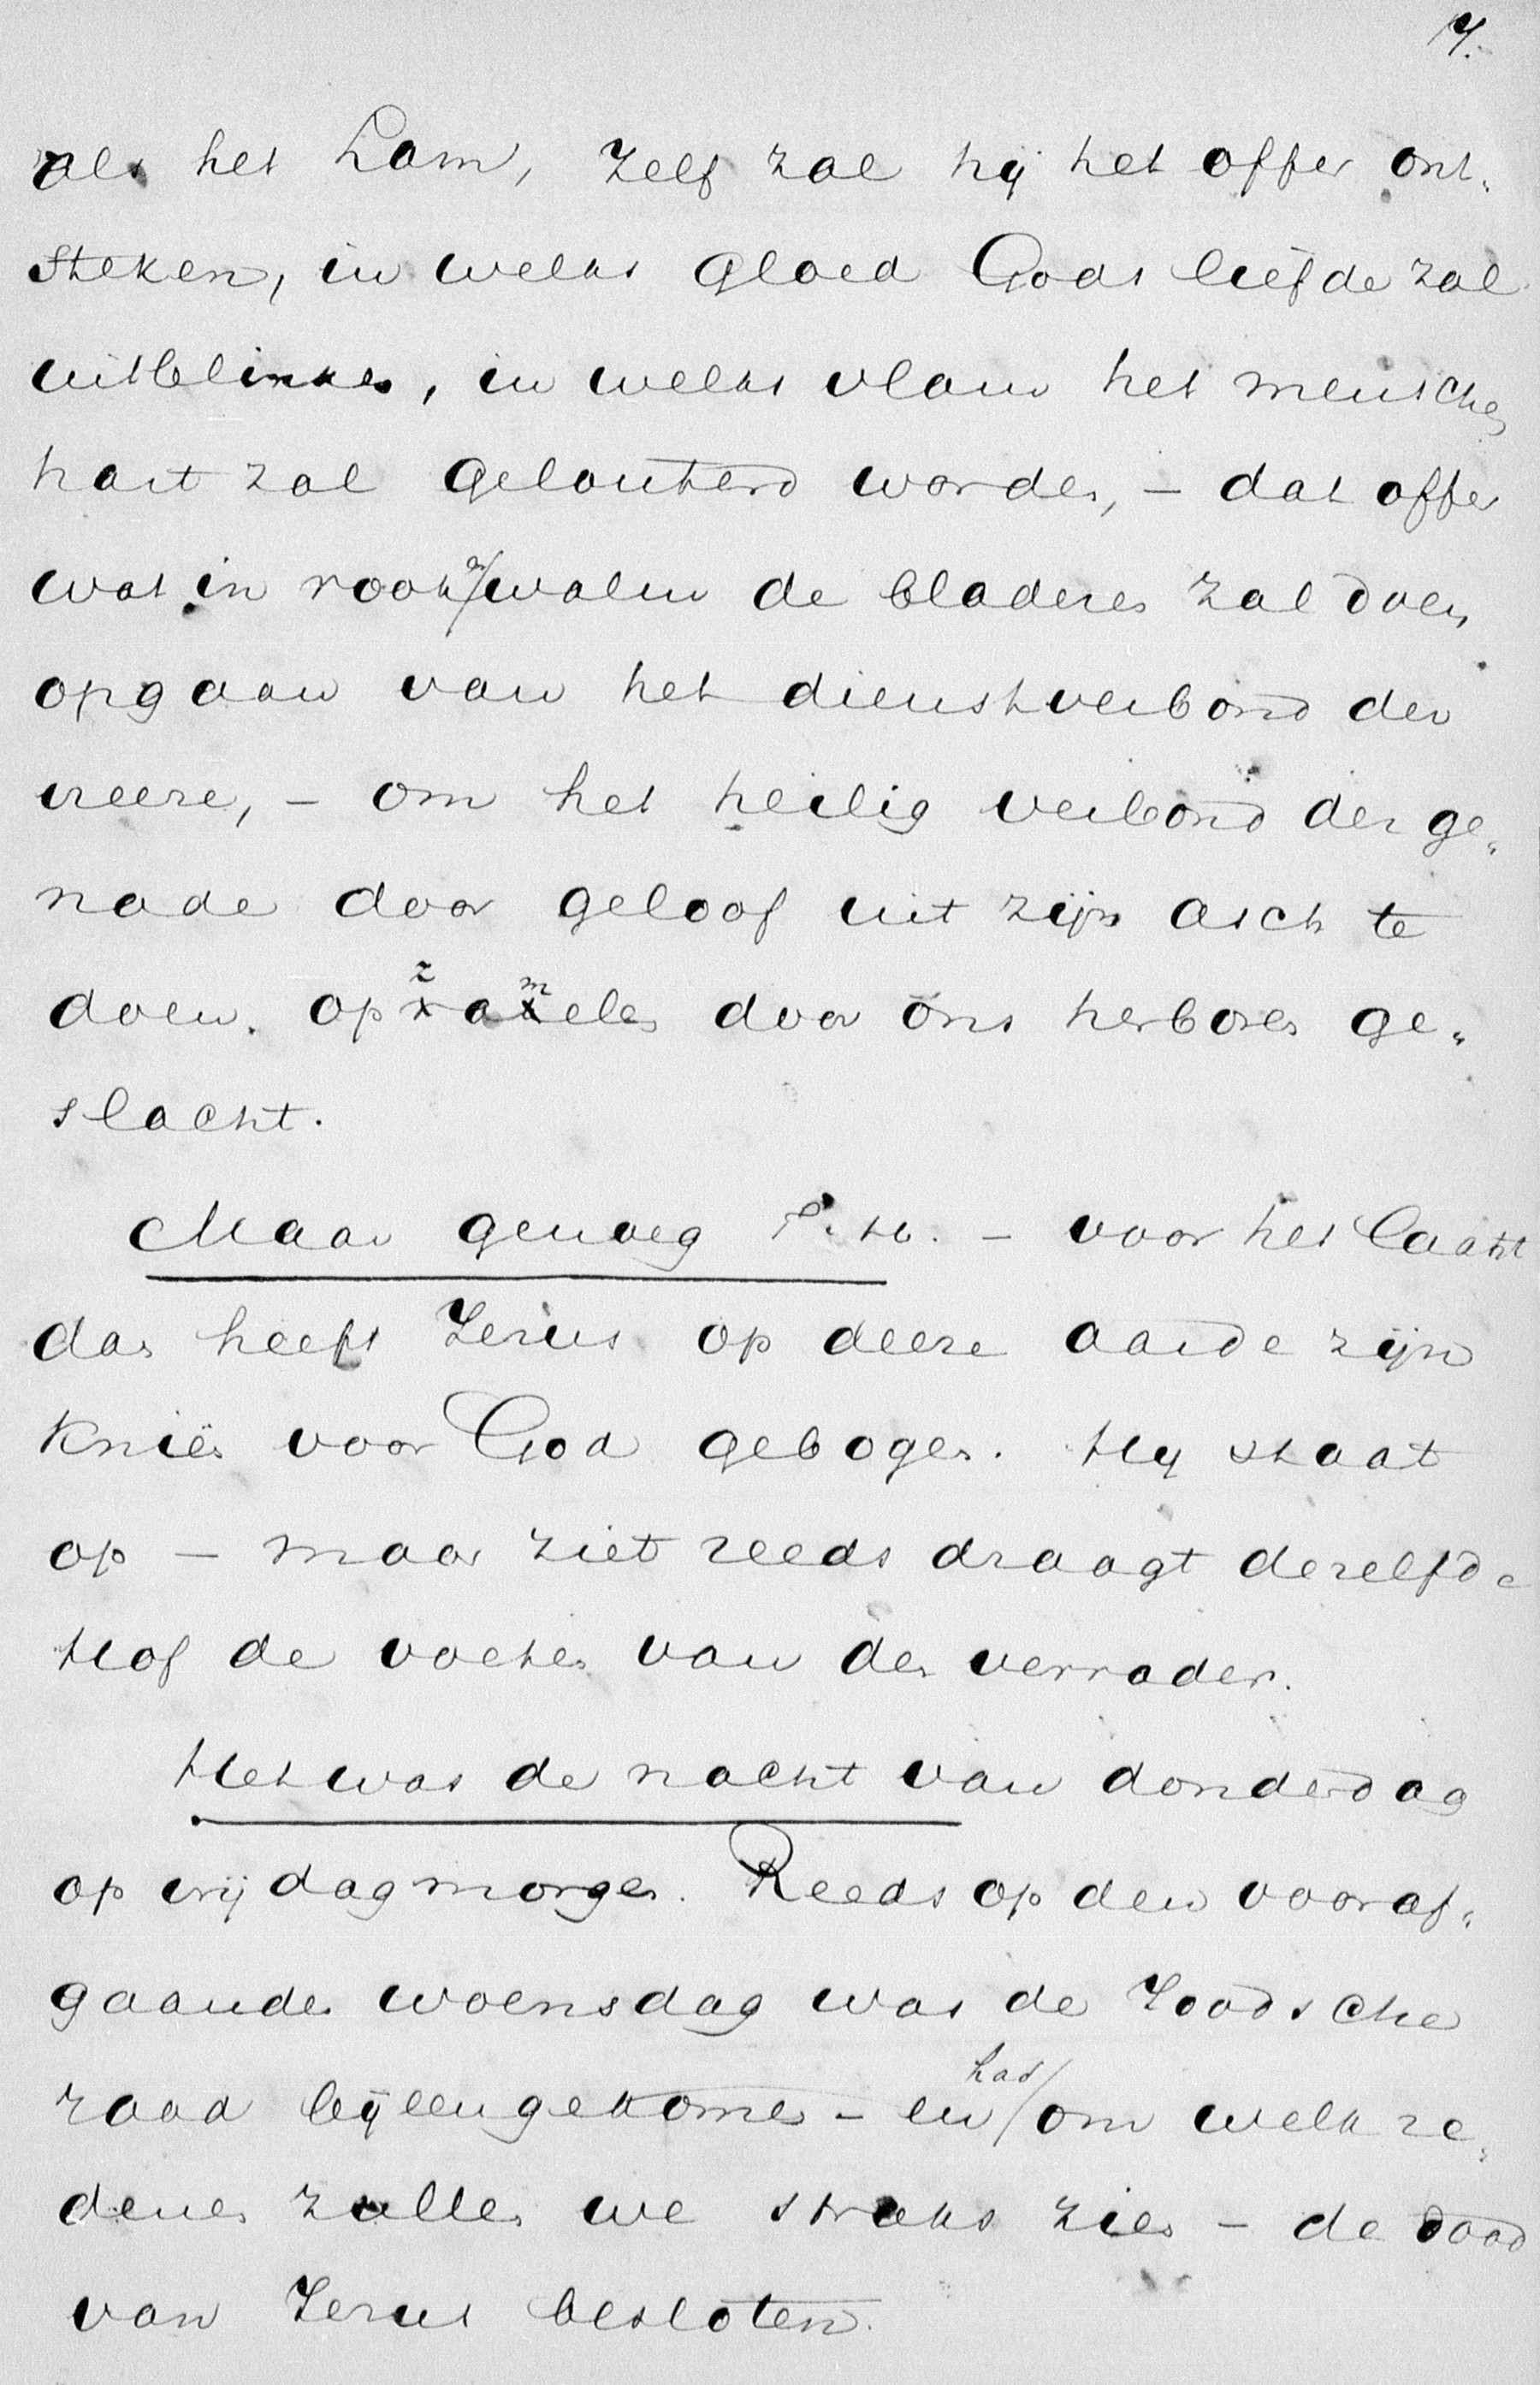 7.
als het Lam, zelf zal hij het offer ont„
steken, in welks gloed Gods liefde zal
uitblinken, in welks vlam het menschen
hart zal gelouterd worden, – dat offer
wat in rook en walm de bladeren zal doen
opgaan van het dienstverbond der
vreeze, – om het heilig verbond der ge„
nade door geloof uit zijn asch te
doen opzamelen door ons herboren ge„
slacht.
Maar genoeg – voor het laatst
dan heeft Jezus op deeze aarde zijn
Kniën voor God gebogen. Hij staat
op – maar ziet reeds draagt dezelfde
Hof de voeten van den verrader.
Het was de nacht van donderdag
op vrijdagmorgen. Reeds op den vooraf„
gaanden woensdag was de Joodsche
raad bijeengekomen – en had om welk re„
denen zullen we straks zien – de dood
van Jezus besloten.